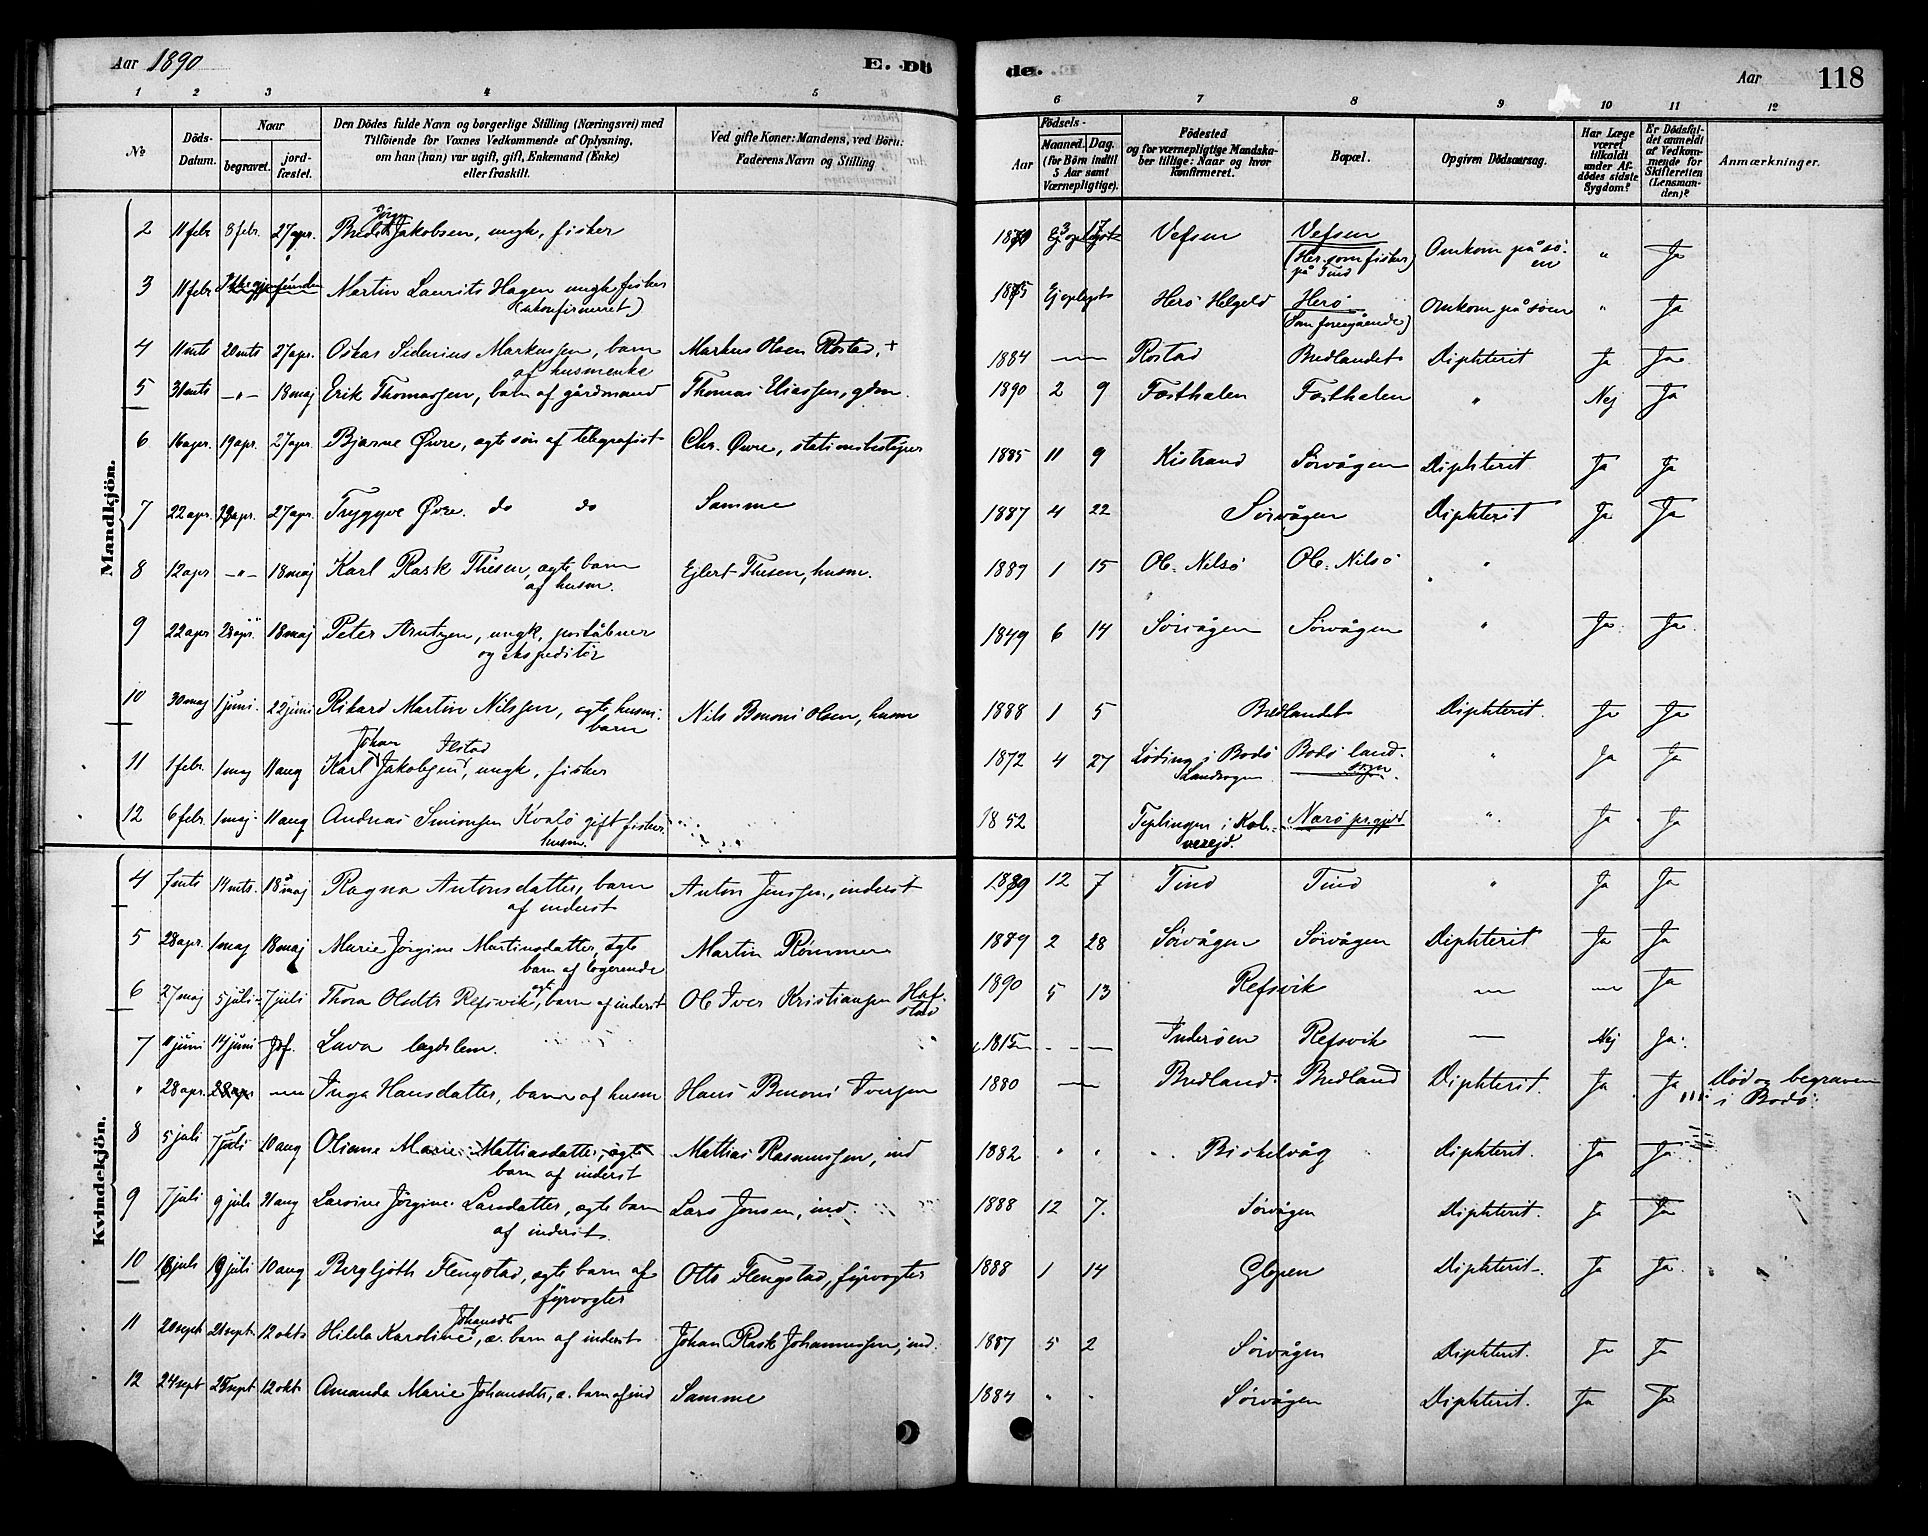 Aar 1890
E. Dö
de.
Aar
118
1 2 3 4 5
6 7 8 9 10 11 12
No.
Döds-Datum.
Naar
begravet.
jord-fæstet.
Den Dödes fulde Navn og borgerlige Stilling (Næringsvei) med
Tilföiende for Voxnes Vedkommende af Oplysning,
om han (hun) var ugift, gift, Enkemand (Enke)
eller fraskilt.
Ved gifte Koner: Mandens, ved Börn:
Faderens Navn og Stilling
Födsels-
Aar
Maaned. Dag.
(for Börn indtil
5 Aar samt
Værnepligtige).
Födested
og for værnepligtige Mandska-
ber tillige: Naar og hvor
konfirmeret.
Bopæl.
Opgiven Dödsaarsag.
Har Læge
været
tilkaldt
under Af-
dödes sidste
Sygdom?
Er Dödsfal-
det anmeldt
af Vedkom-
mende for
Skifteretten
(Lensman-
den)?
Anmærkninger.
Mandkjön.
2 11 febr 8 febr. 27 apr. Jakobsen, ungk, fisker Vefsen Vefsen (Her som fisker på Tind Omkom på söen " Ja
3 11 febr Martin Laurits Hagen ungk, fisker (ukonfirmeret) 1875 Ej oplyst Herö Helgeld Herö (Som foregående) Omkom på söen " Ja
4 11 mts 20 mts 27 apr. Oskar Sidenius Markussen, barn af husmenke Markus Olsen Rostad, + 1884 — Rostad Bredlandet Diphterit Ja Ja
5 31 mts —"— 18 maj Erik Thomassen, barn af gårdmand Thomas Eliassen, gdm. 1890 2 9 Festhalen Festhalen " Nej Ja
6 16 apr. 19 apr. 27 apr. Bjarne Øvre, ægte sön af telegrafist Chr. Øvre, stationsbestyrer 1885 11 9 Kistrand Sörvågen Diphterit Ja Ja
7 22 apr. 23 apr. 27 apr. Tryggve Øvre. do do Samme 1887 4 22 Sörvågen Diphterit Ja Ja
8 12 apr —"— 18 maj Karl Rask Thisen, ægte barn af husm. Ejlert Thesen, husm. 1889 1 15 Ob. Nilsö Ob. Nilsö "
9 22 apr 28 apr. 18 maj Peter Arntzen, ungk, poståbner og ekspeditör 1849 6 14 Sörvågen Sörvågen " Ja Ja
10 30 maj 1 juni 22 juni Rikard Martin Nilssen, ægte husm. barn Nils Benoni Olsen, husm 1888 1 5 Bredlandet Diphterit. Ja Ja
11 1 febr. 1 maj 11 aug Karl Johan Jakobsen Ilstad, ungk, fisker 1872 4 27 Löding i Bodö Landsogn Bodö landsogn " Ja Ja
12 6 febr. 1 maj 11 aug Andreas Simonsen Kvalö gift fisker husm. 1852 Teplingen i Kol-vereid. Narö pr.gjeld " Ja Ja
Kvindekjön.
4 7 mts 14 mts. 18 maj Ragna Antonsdatter, barn af inderst Anton Jenssen, inderst 1889 12 7 Tind Tind " Ja Ja
5 28 apr. 1 maj 18 maj Marie Jörgine Martinsdatter, ægte barn af logerende Martin Rømmen 1889 2 28 Sörvågen Sörvågen Diphterit Ja Ja
6 27 maj 5 juli 7 juli Thora Olsdtr Refsvik, ægte barn af inderst Ole Iver Kristiansen Hafstad 1890 5 13 Refsvik — — Ja
7 11 juni 14 juni Jdf. Lava lægdslem. 1815 — — Inderöen Refsvik — Nej Ja
" 28 apr. 28 apr — Inga Hansdatter, barn af husm Hans Benoni Iversen 1880 — Bredland Bredland Diphterit. Ja Ja Död og begraven i Bodö
8 5 juli 7 juli 10 aug Oliane Marie Mattiasdatter, ægte barn af inderst Mattias Rasmussen, ind 1882 " " Birkelvåg Diphterit. Ja Ja
9 7 juli 9 juli 21 aug Lavine Jörgine Larsdatter, ægte barn af inderst. Lars Jensen, ind. 1888 12 7. Sörvågen Diphterit. Ja Ja
10 18 juli 19 juli 10 aug Bergljoth Flengstad, ægte barn af fyrvogter Otto Flengstad, fyrvogter 1888 1 14 Glopen Diphterit. Ja Ja
11 20 sept 21 sept 12 okt Hilda Karoline Johansdtr, æ. barn af inderst Johan Rask Johannessen, ind. 1887 5 2 Sörvågen Diphterit. Ja Ja
12 24 sept 25 sept 12 okt Amanda Marie Johansdtr, æ. barn af ind Samme 1884 " " Sörvågen Diphterit. Ja Ja